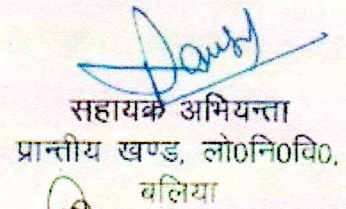 सहायक अभियन्ता
प्रान्तीय खण्ड, लो0नि0वि0,
बलिया